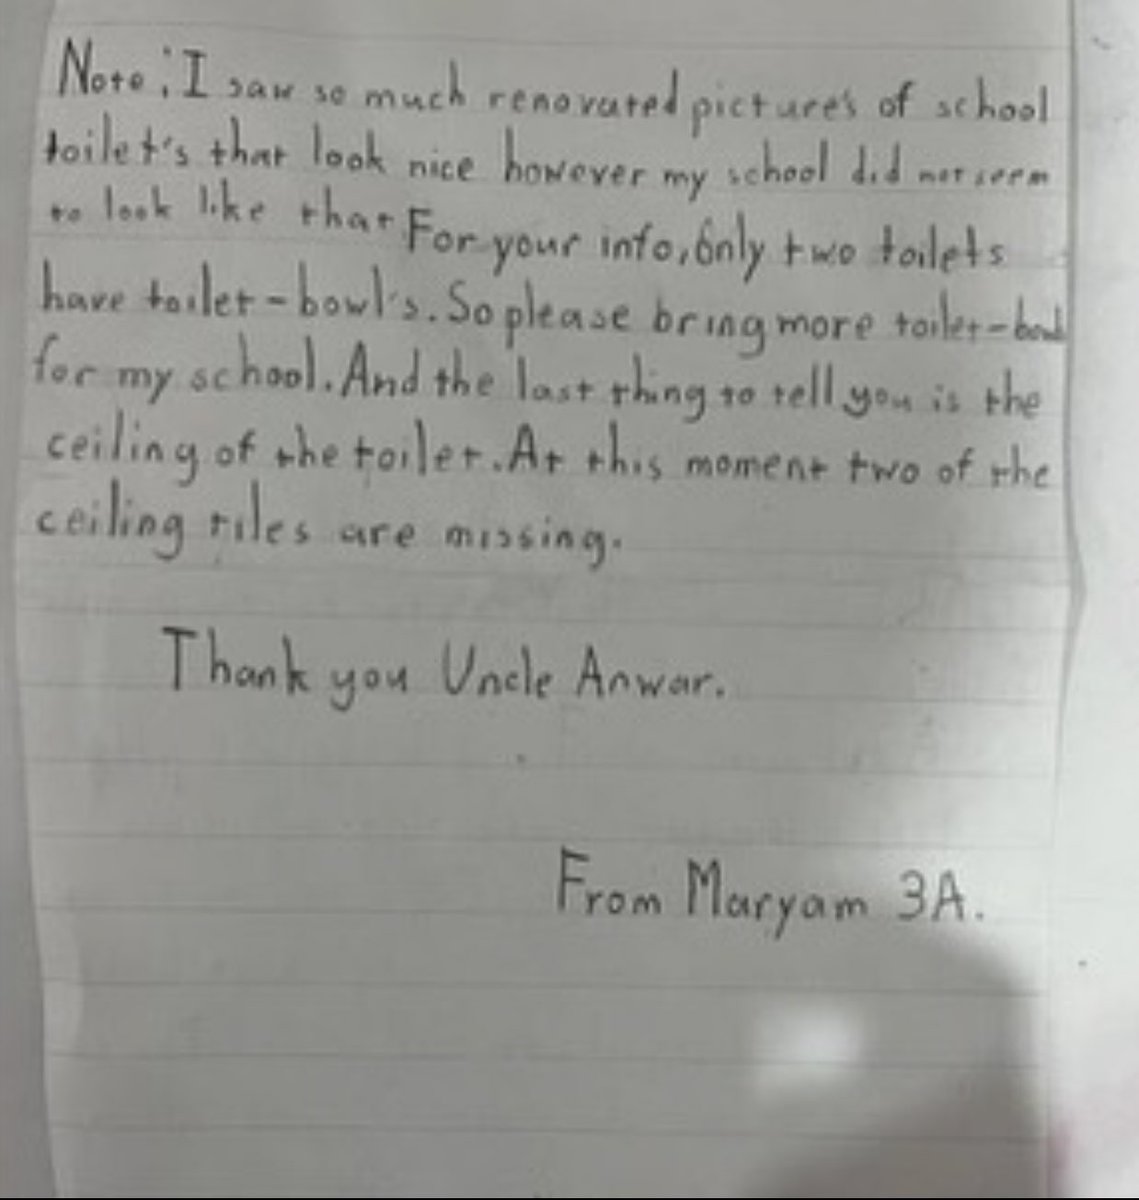 Note : I saw so much renovated picture's of school
toilet's that look nice however my school did not seem
to look like that For your info, only two toilets
have toilet-bowl's. So please bring more toilet-bowl
for my school. And the last thing to tell you is the
ceiling of the toilet. At this moment two of the
ceiling tiles are missing.
Thank you Uncle Anwar.
From Maryam 3A.